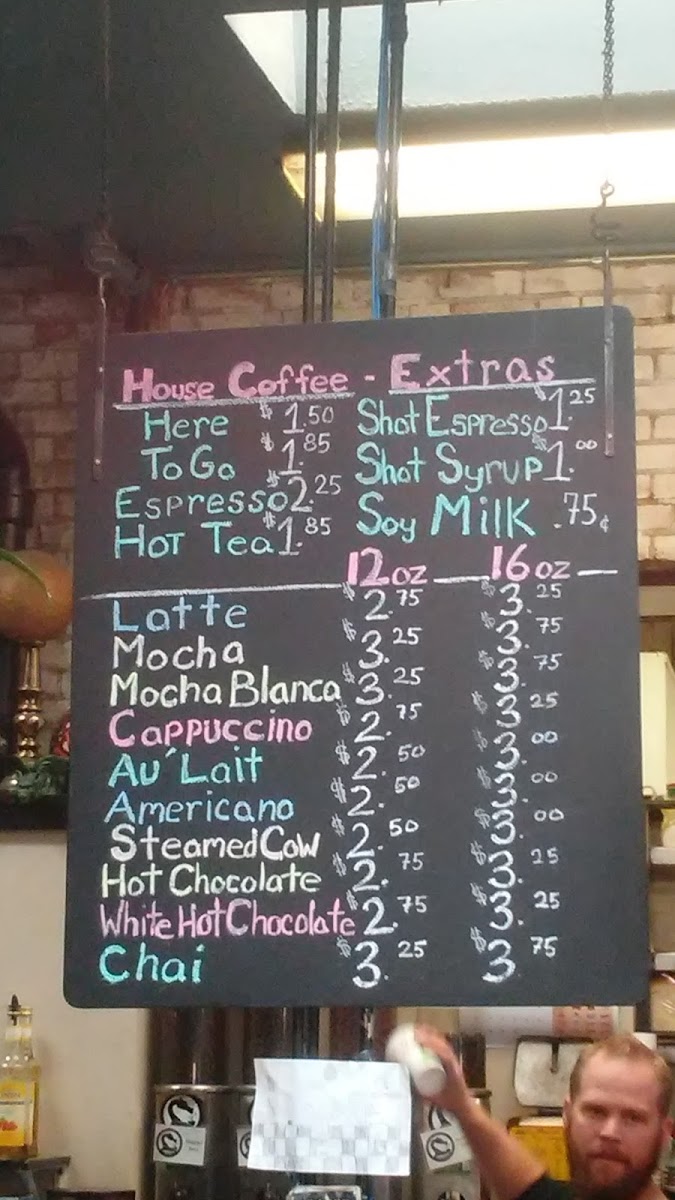 House Coffee - Extras
Here $1.50 Shot Espresso $1.25
To Go $1.85 Shot Syrup $1.00
Espresso $2.25 Soy Milk .75¢
Hot Tea $1.85
12oz 16oz
Latte $2.75 $3.25
Mocha $3.25 $3.75
Mocha Blanca $3.25 $3.75
Cappuccino $2.75 $3.25
Au´Lait $2.50 $3.00
Americano $2.50 $3.00
Steamed Cow $2.50 $3.00
Hot Chocolate $2.75 $3.25
White Hot Chocolate $2.75 $3.25
Chai $3.25 $3.75